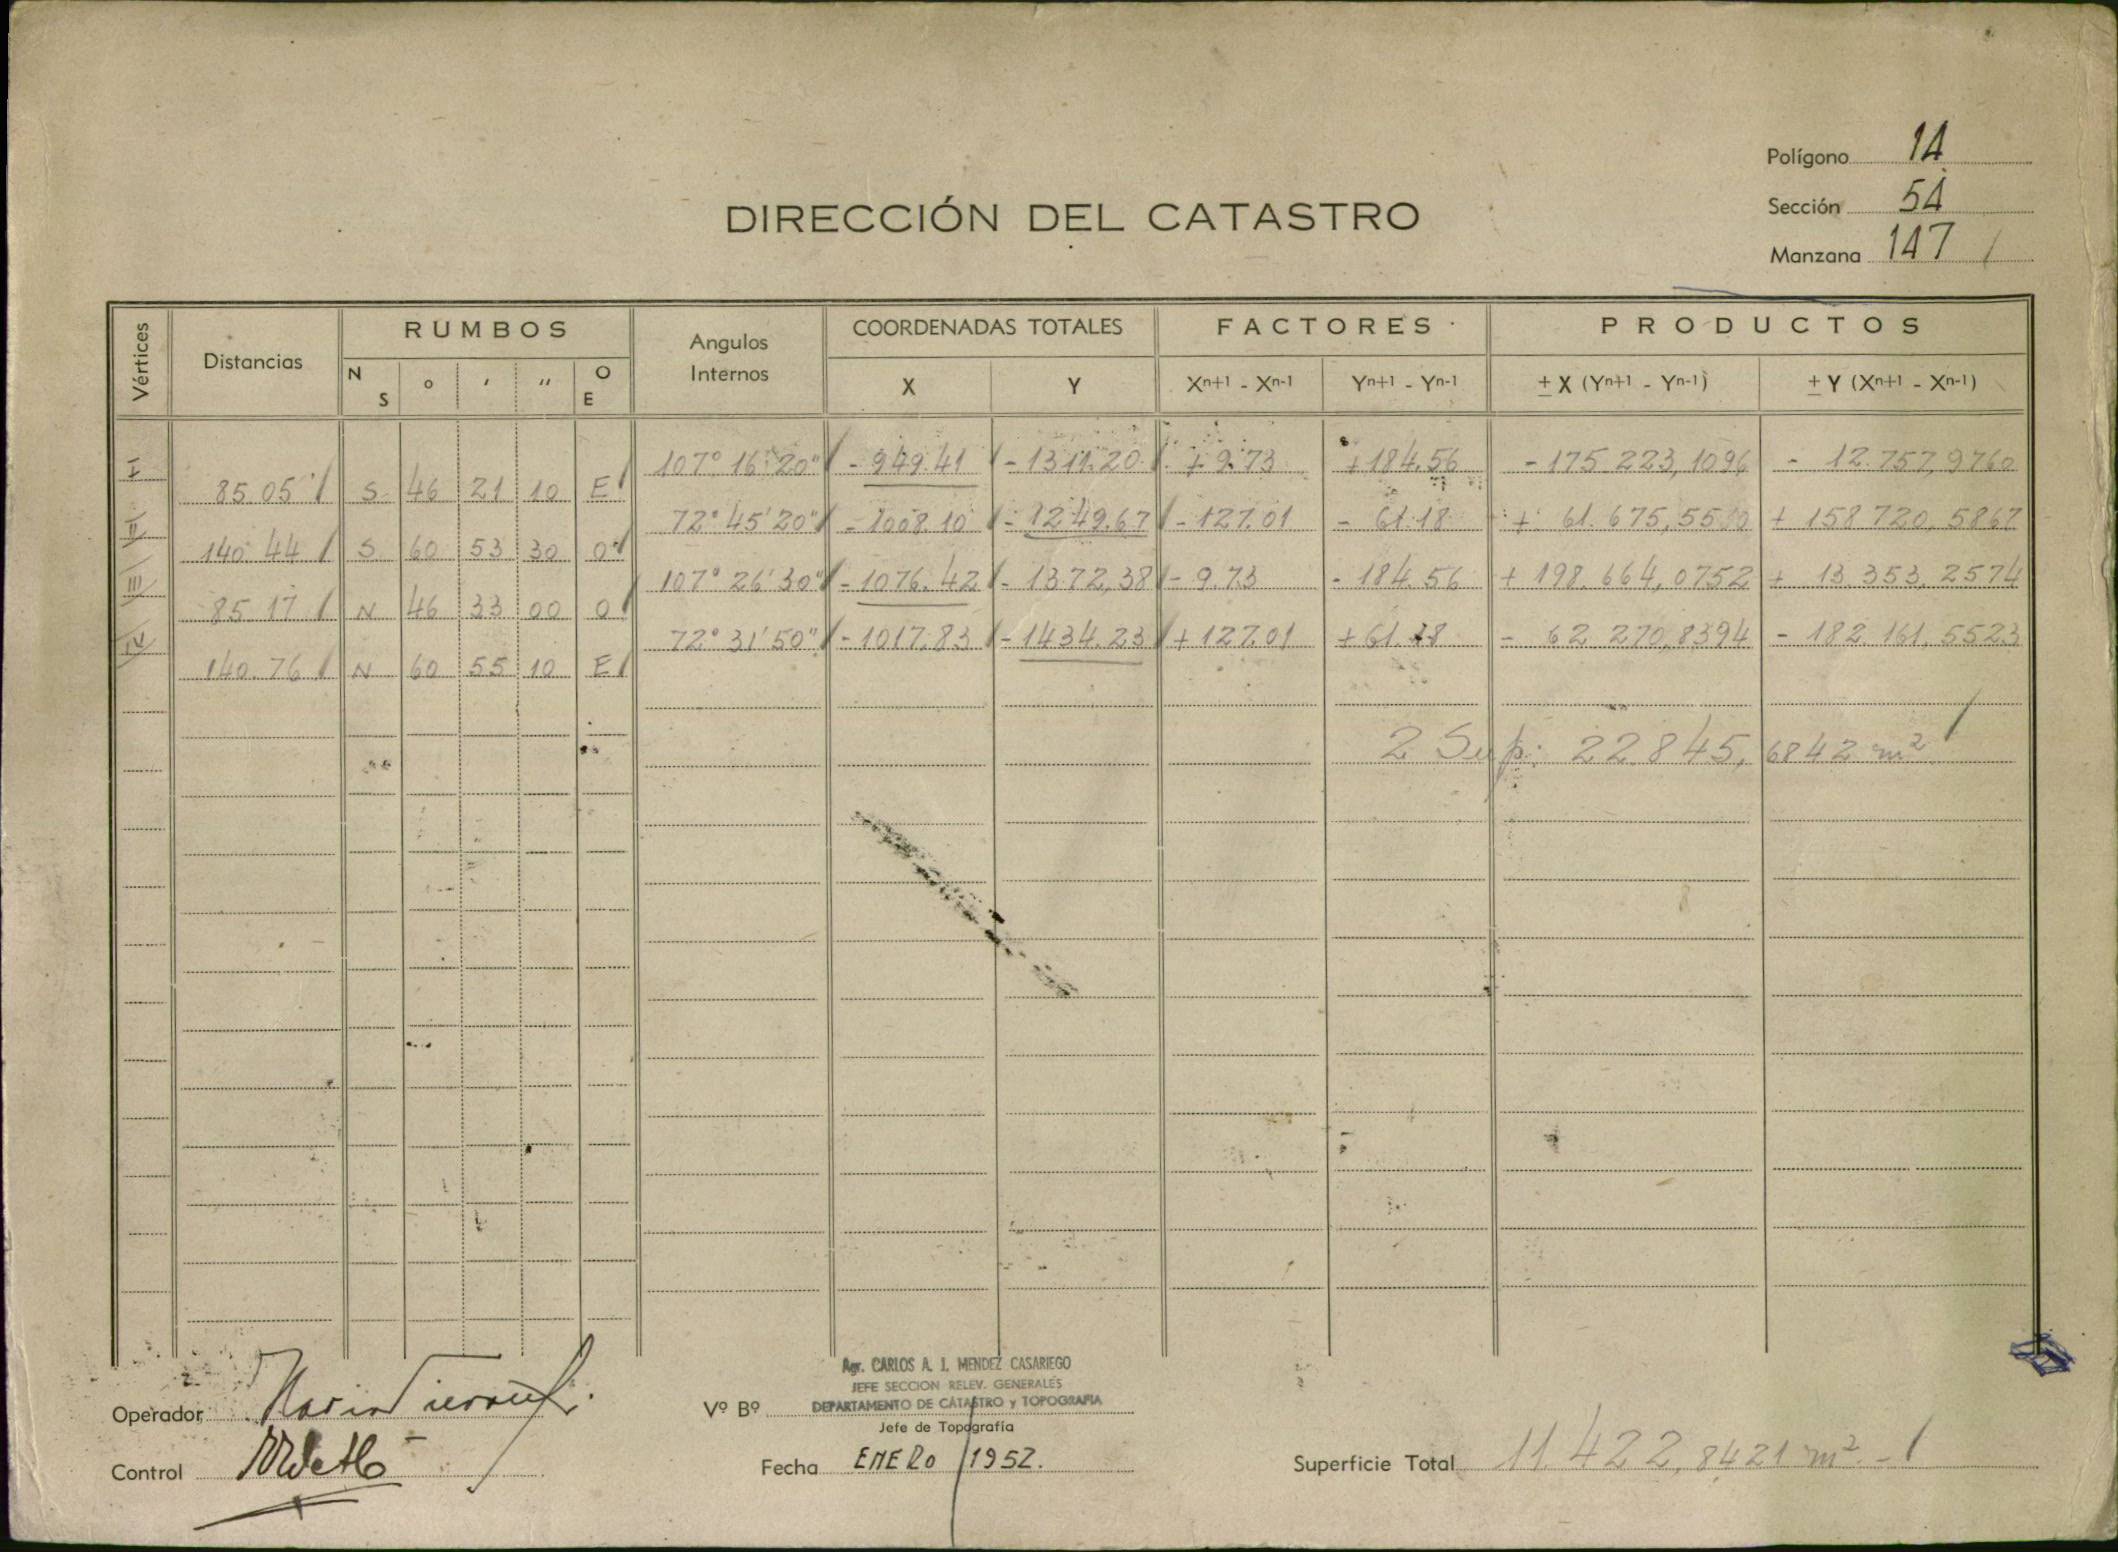 Polígono 14
Sección 54
Manzana 147
DIRECCIÓN DEL CATASTRO
Vértices Distancias RUMBOS Angulos Internos COORDENADAS TOTALES FACTORES PRODUCTOS
N S ° ' " O E X Y Xn+1 - Xn-1 Yn+1 - Yn-1 ± X (Yn+1 - Yn-1) ± Y (Xn+1 - Xn-1)
I 107° 16' 20" - 949.41 - 1311.20 + 9.73 + 184.56 - 175 223,1096 - 12.757,9760
85.05 S 46 21 10 E
II 72° 45' 20" - 1008.10 - 1249.67 - 127.01 - 61.18 + 61.675,5580 + 158 720,5867
140.44 S 60 53 30 O
III 107° 26' 30" - 1076.42 - 1372,38 - 9.73 - 184.56 + 198.664,0752 + 13.353,2574
85.17 N 46 33 00 O
IV 72° 31' 50" - 1017.83 - 1434.23 + 127.01 + 61.18 - 62 270,8394 - 182.161,5523
140.76 N 60 55 10 E
2 Sup: 22.845,6842 m²
Agr. CARLOS A. I. MENDEZ CASARIEGO
JEFE SECCION RELEV. GENERALES
Operador Vº Bº DEPARTAMENTO DE CATASTRO y TOPOGRAFIA
Jefe de Topografía
Control Fecha ENERO /1952. Superficie Total 11.422,8421 m².-